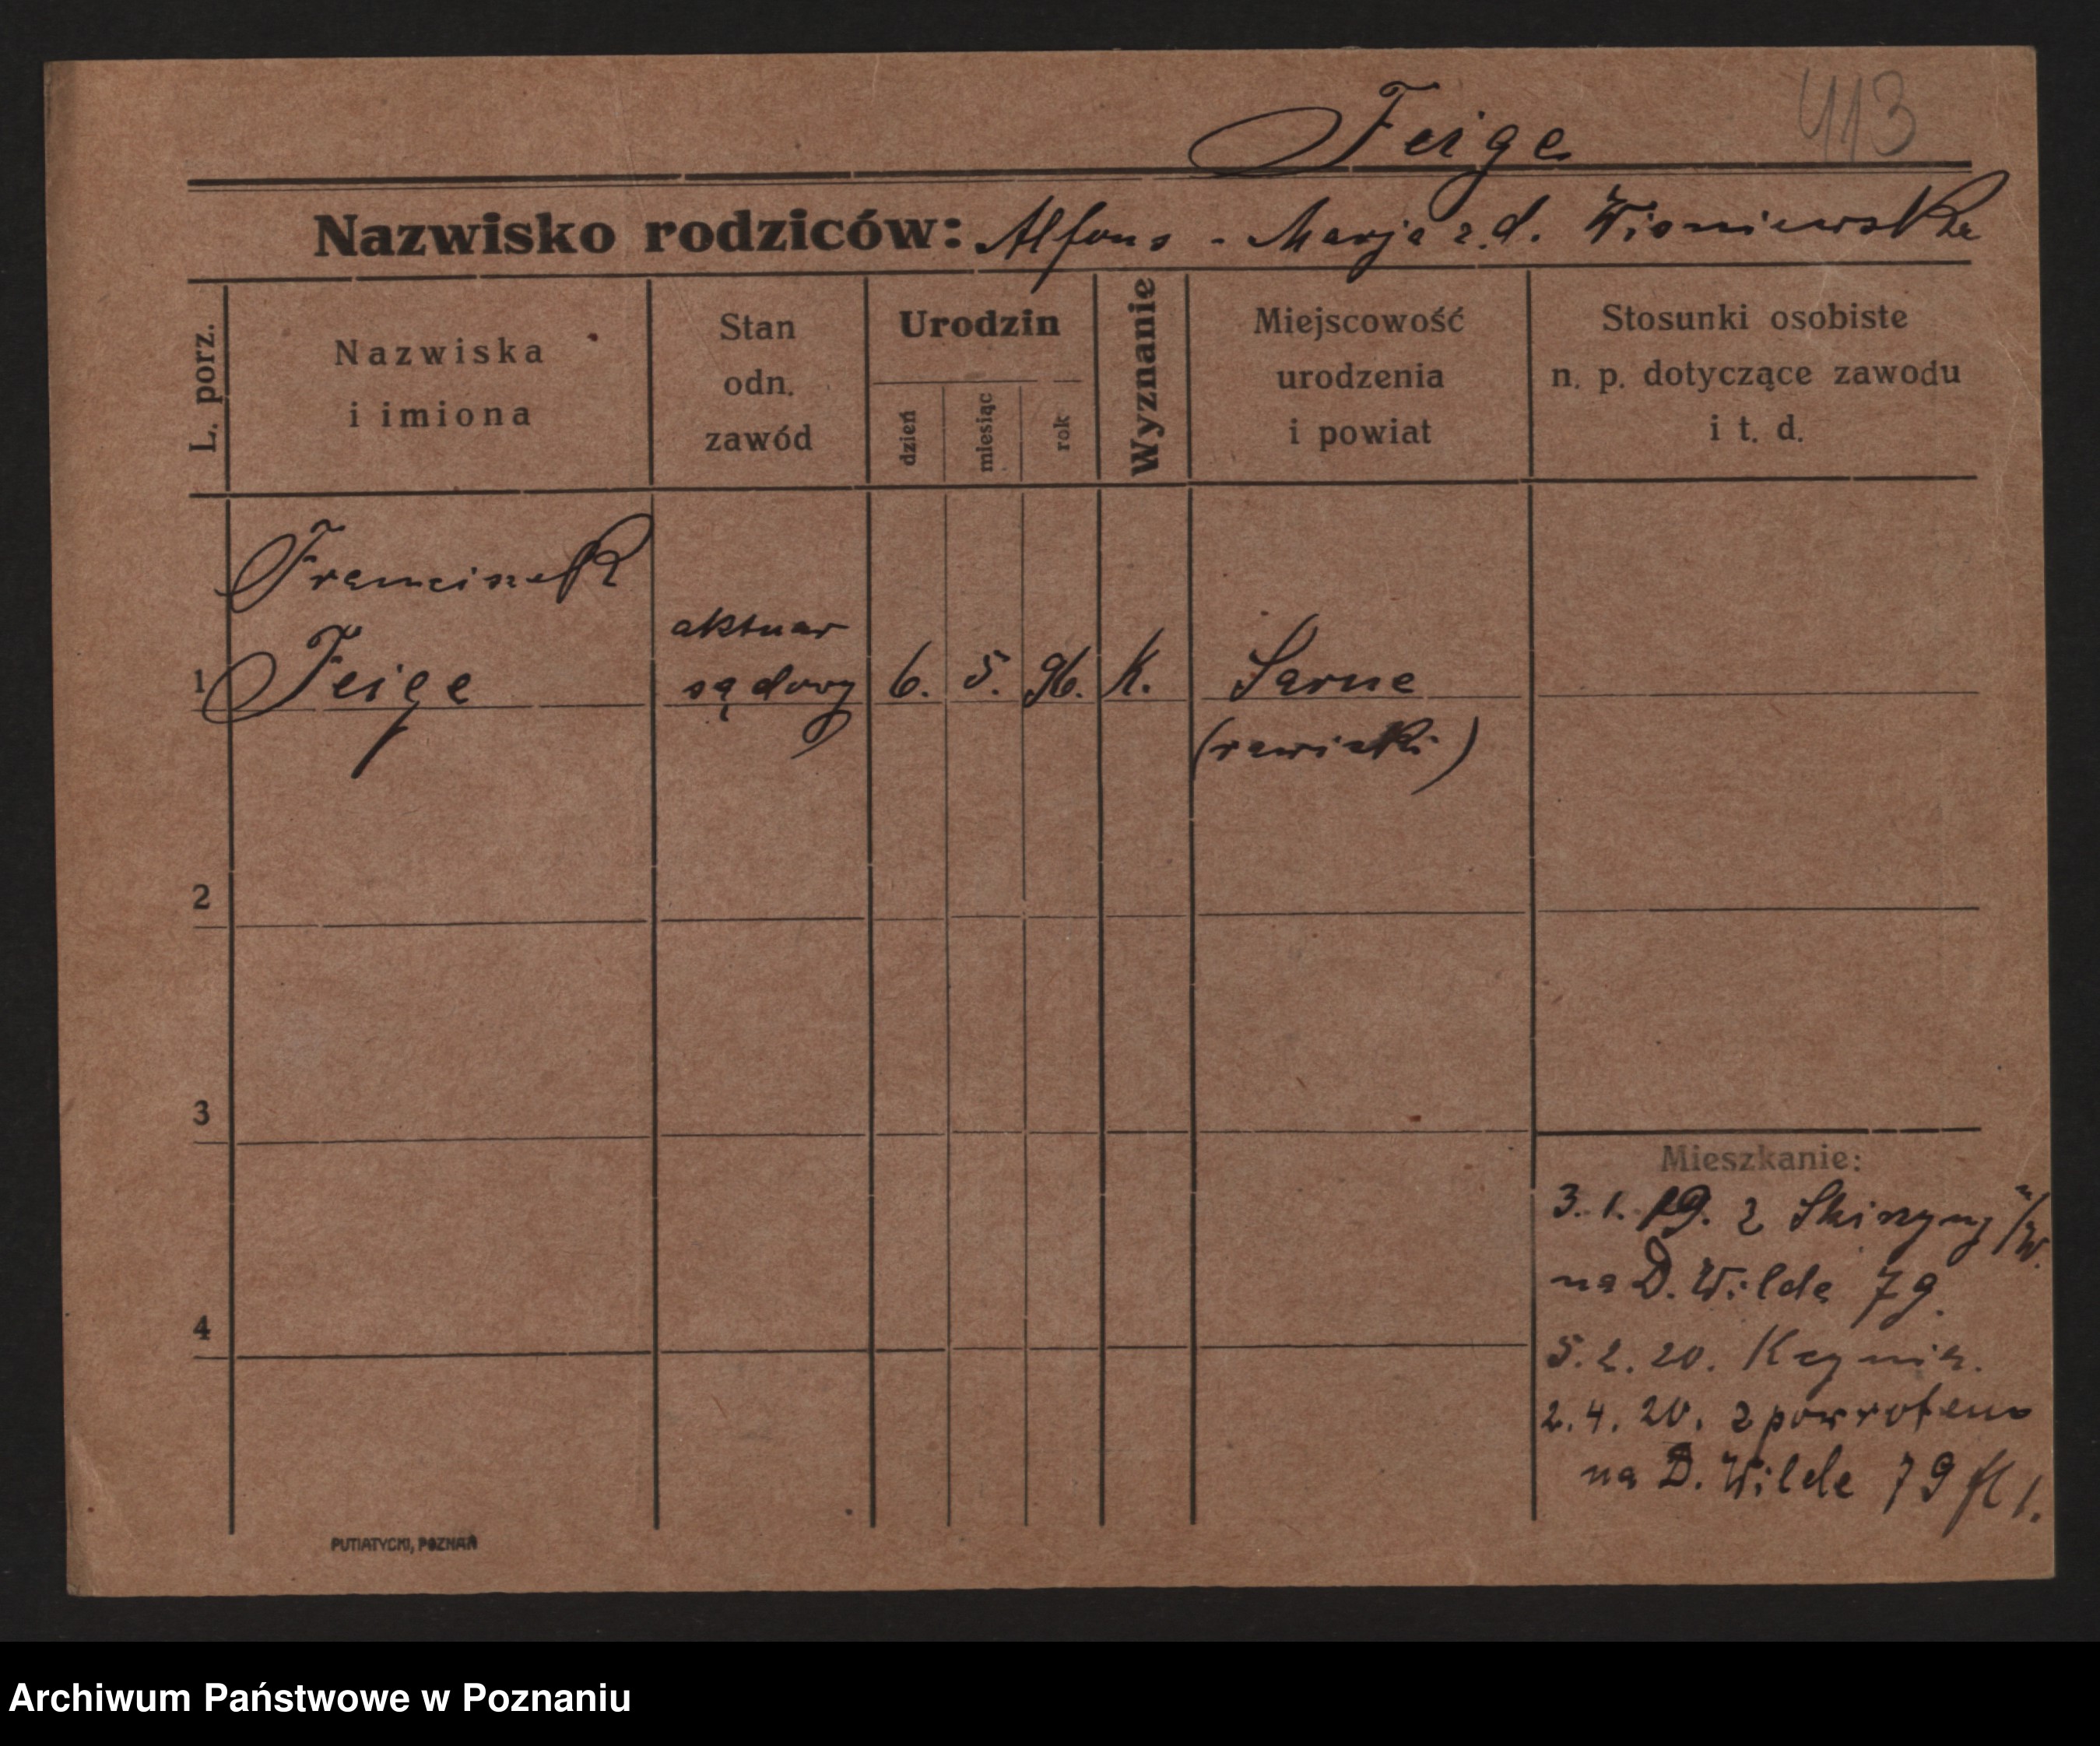 Feige 413
Nazwisko rodziców: Alfons - Marja z. d. Wisniewska
L. porz.
Nazwiska
i imiona
Stan
odn.
zawód
Urodzin
dzień
miesiąc
rok
Wyznanie
Miejscowość
urodzenia
i powiat
Stosunki osobiste
n. p. dotyczące zawodu
i t. d.
Franciszek
aktuar
1 Feige sądowy 6. 5. 96. K. Sarne
(rawicki)
2
3
Mieszkanie:
3. 1. 19. z
na D. Wilda 79.
4
5. 2. 20. Kcynia.
2. 4. 20. z powrotem
na D. Wilde 79
PUTIATYCKI, POZNAŃ
Archiwum Państwowe w Poznaniu